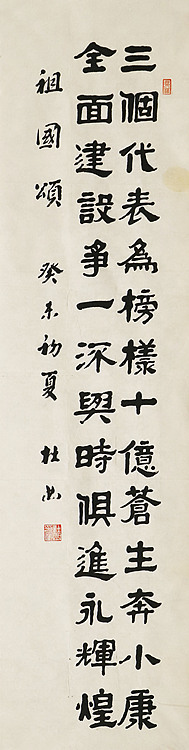 三個代表爲榜樣十億蒼生奔小康
全面建設爭一流與時俱進永輝煌
祖國頌 癸未初夏 杜